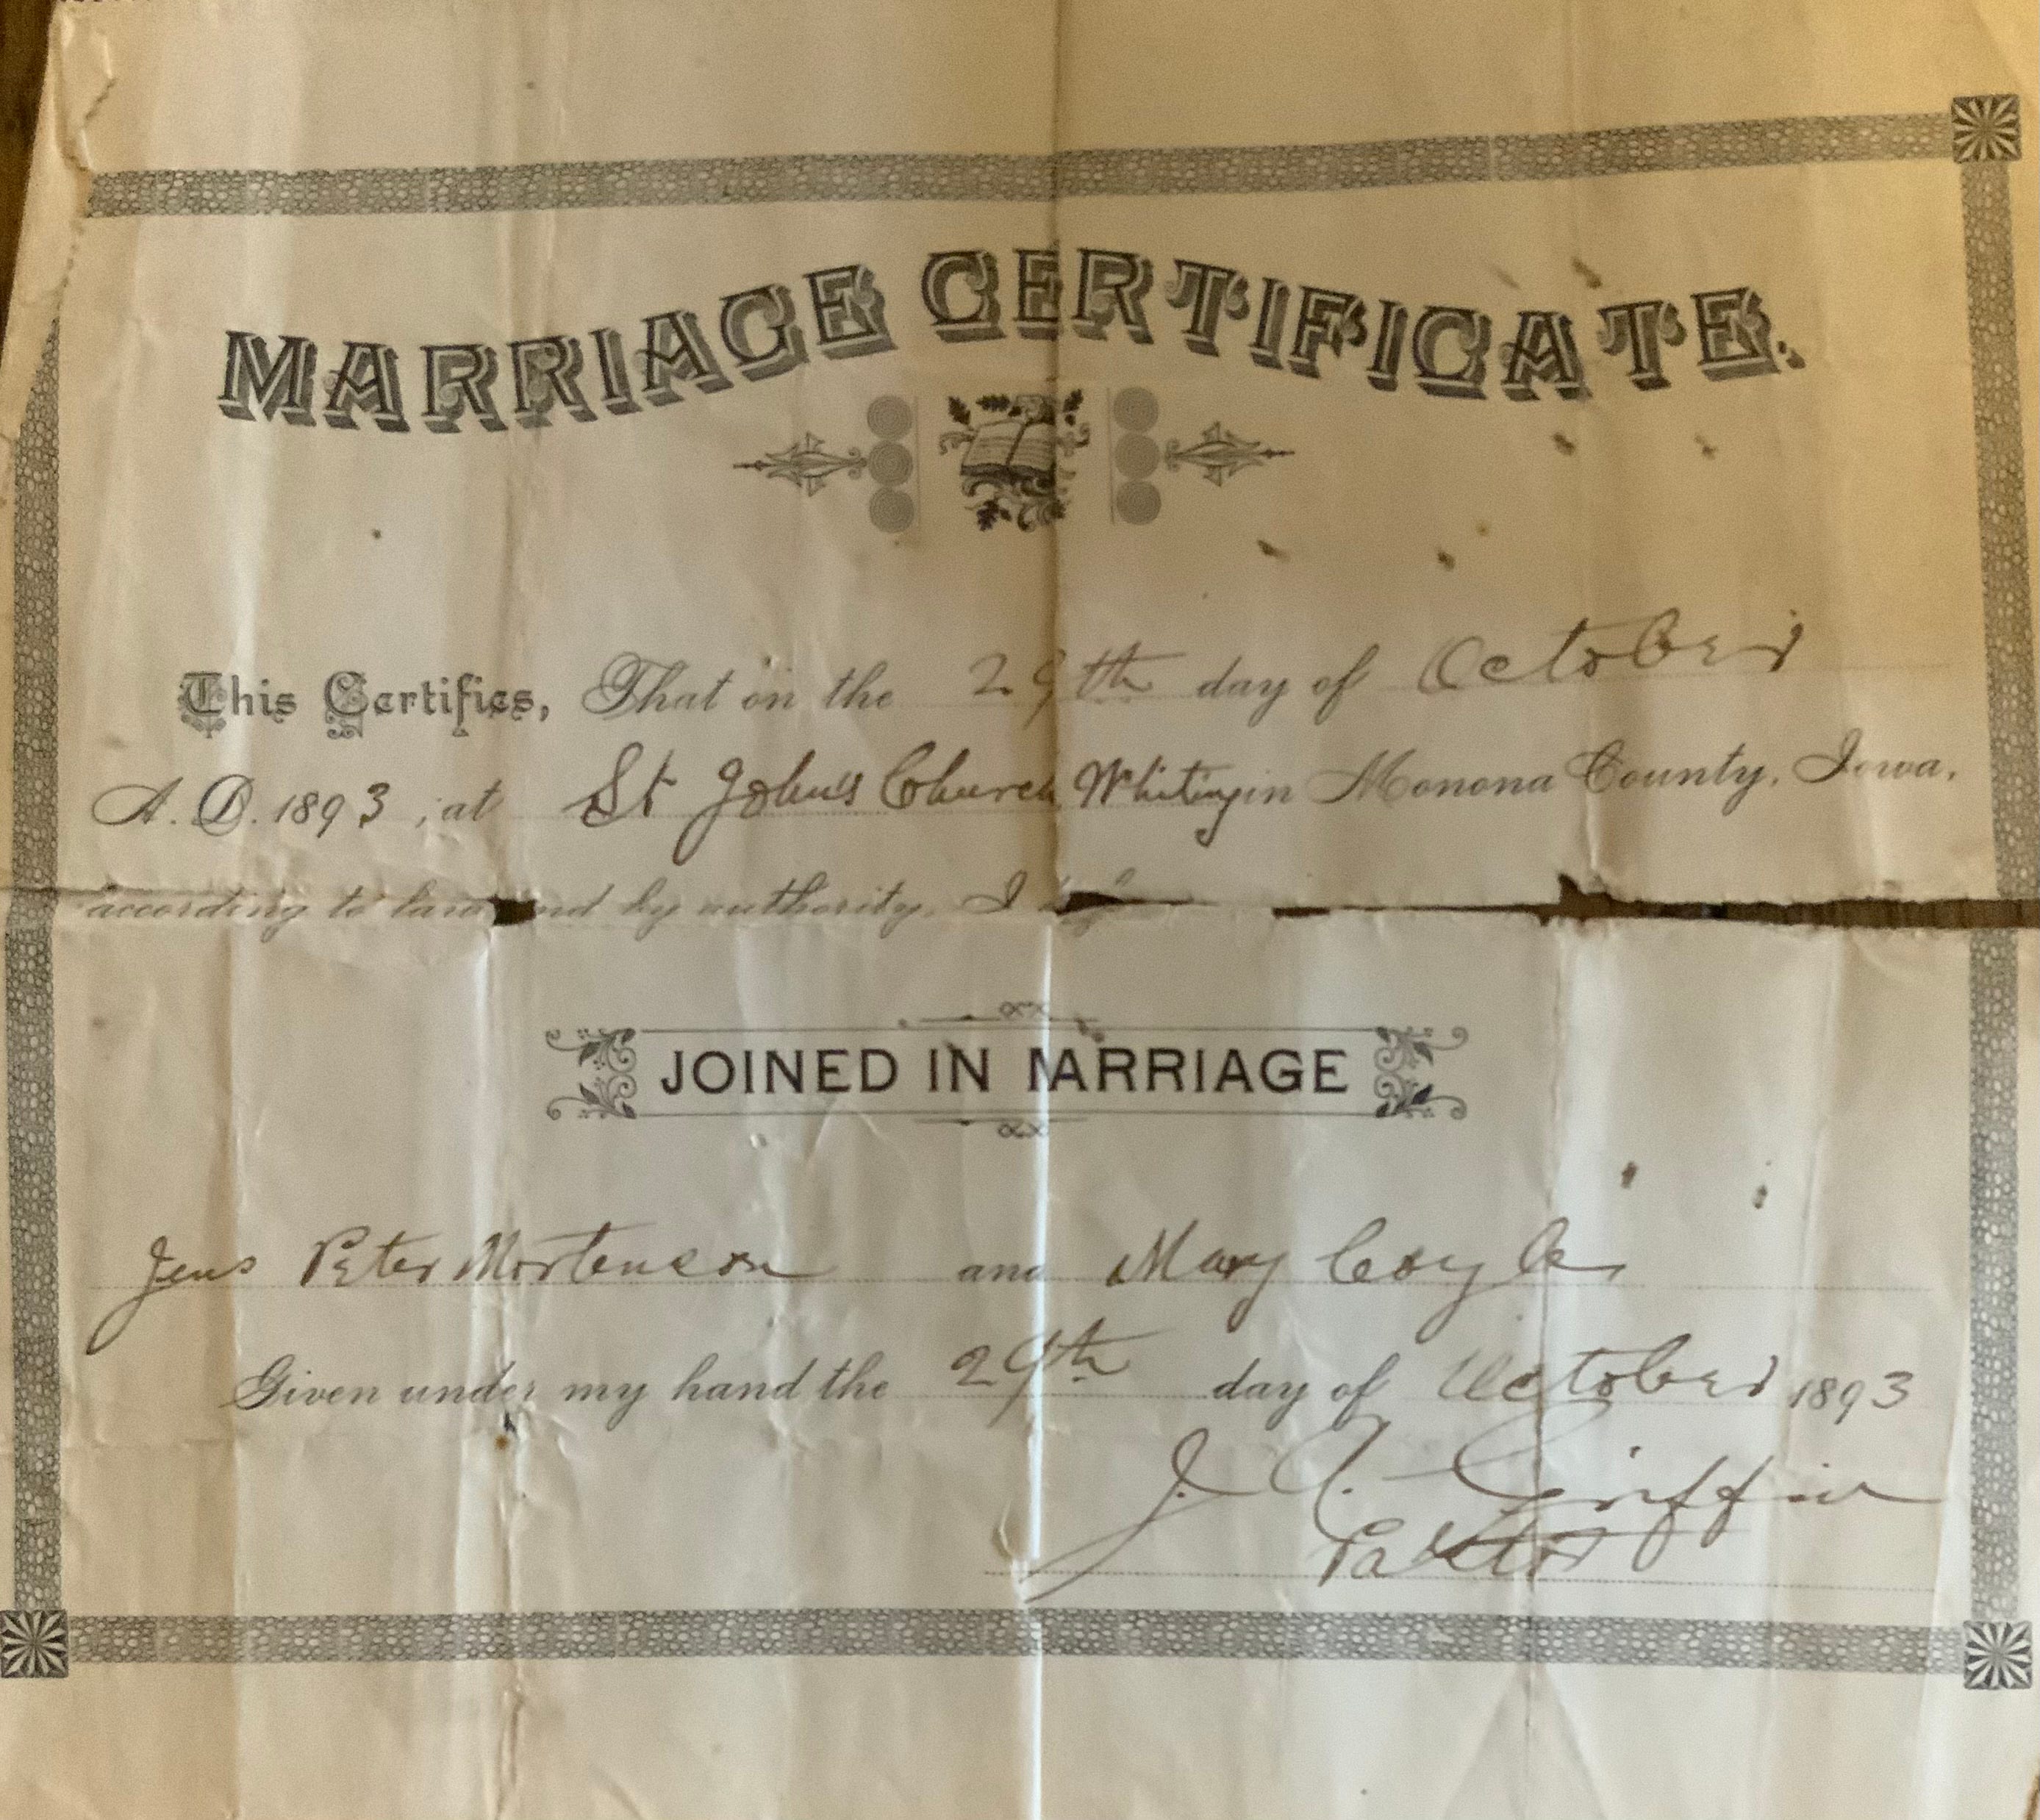 MARRIAGE CERTIFICATE.
This Certifies, That on the 29th day of October
A.D. 1893, at St John's Church Whiting in Monona County, Iowa,
according to law and by authority, I
JOINED IN MARRIAGE
Jens Peter Mortenson and Mary Coyle
Given under my hand the 29th day of October 1893
J. A. Griffin
Pastor